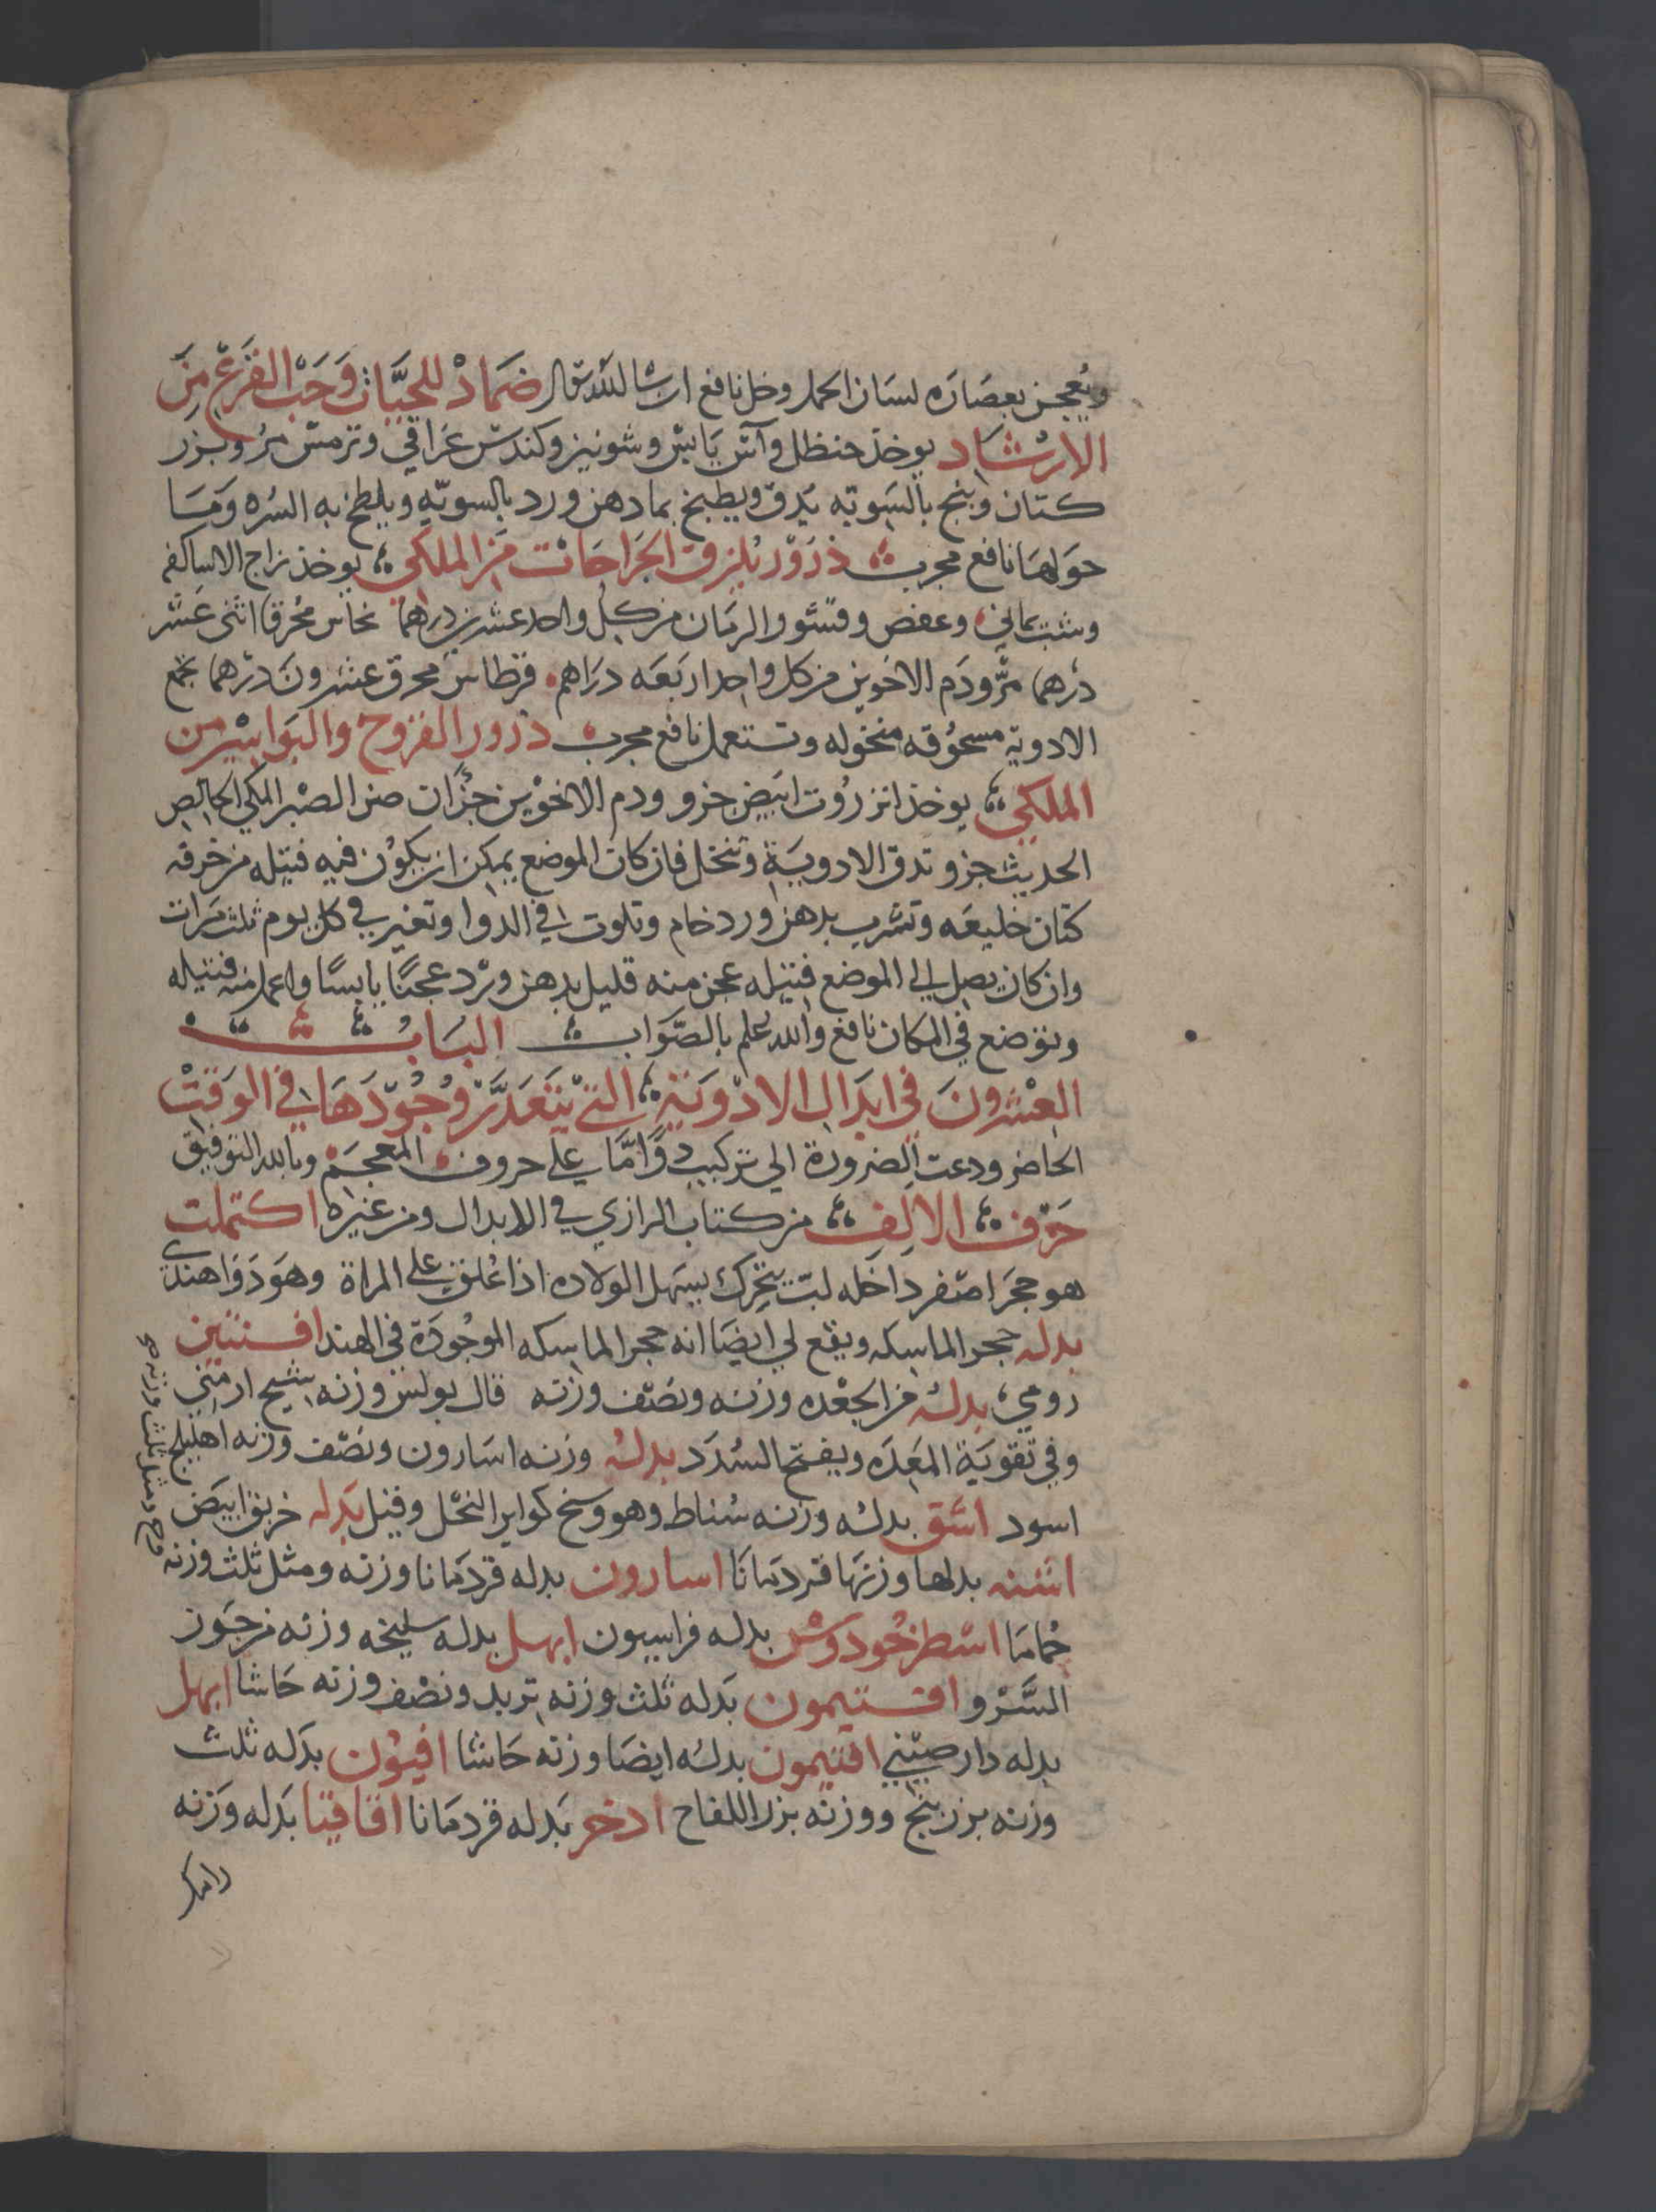 ويعجن بعصاره لسان الحمل وخل نافع ان شا الله تعالى ضماد للحيات وحب القرع من
الارشاد يوخذ حنظل وآس يابس وشونيز وكندس عراقي وترمس مر وبزر
كتان وبنج بالسويه يدق ويطبخ بما دهن ورد بالسويه ويلطخ به السره وما
حولها نافع مجرب ذرور يلزق الجراحات من الملكي يوخذ زاج الاساكفه
وشب يماني وعفص وقشور الرمان من كل واحد عشرين درهما نحاس محرق اثنى عشر
درهما مر ودم الاخوين من كل واحد اربعه دراهم قرطاس محرق عشرون درهما تجمع
الادوية مسحوقه منخوله وتستعمل نافع مجرب ذرور القروح والبواسير من
الملكي يوخذ انزروت ابيض جزو ودم الاخوين جزان من الصبر المكي الخالص
الحديث جزو تدق الادوية وتنخل فان كان الموضع يمكن ان يكون فيه فتيله من خرقه
كتان خليعه وتشرب بدهن ورد خام وتلوت في الدوا وتغير في كل يوم ثلث مرات
وان كان يصل الى الموضع فتيله عجن منه قليل بدهن ورد عجنًا يابسًا واعمل منه فتيله
وتوضع في المكان نافع والله اعلم بالصواب الباب
العشرون في ابدال الادوية التي يتعذر وجودها في الوقت
الحاضر ودعت الضرورة الي تركيب دوًا ما على حروف المعجم وبالله التوفيق
حرف الالف من كتاب الرازي في الابدال ومن غيره اكتملت
هو حجر اصفر داخله لب يتحرك يسهل الولاده اذا علق على المراة وهو دوا هندي
بدله حجر الماسكه ويقع لي ايضا انه حجر الماسكه الموجودة في الهند افسنتين
رومي بدله من الجعده وزنه ونصف وزنه قال بولس وزنه شيح ارمني
وفي تقوية المعده ويفتح السدد بدله وزنه اسارون ونصف وزنه اهليلج
اسود اشق بدله وزنه سناط وهو وسخ كواير النحل وقيل بدله خربق ابيض
اشنه بدلها وزنها قردمانا اسارون بدله قردمانا وزنه ومثل ثلث وزنه
حماما اسطوخودوس بدله فراسيون ابهل بدله سليخه وزنه من جوز
السرو افتيمون بدله ثلث وزنه تربد ونصف وزنه حاشا ابهل
بدله دار صيني افتيمون بدله ايضا وزنه حاشا افيون بدله ثلث
وزنه بزر بنج ووزنه بزر اللفاح ادخر بدله قردمانا اقاقيا بدله وزنه